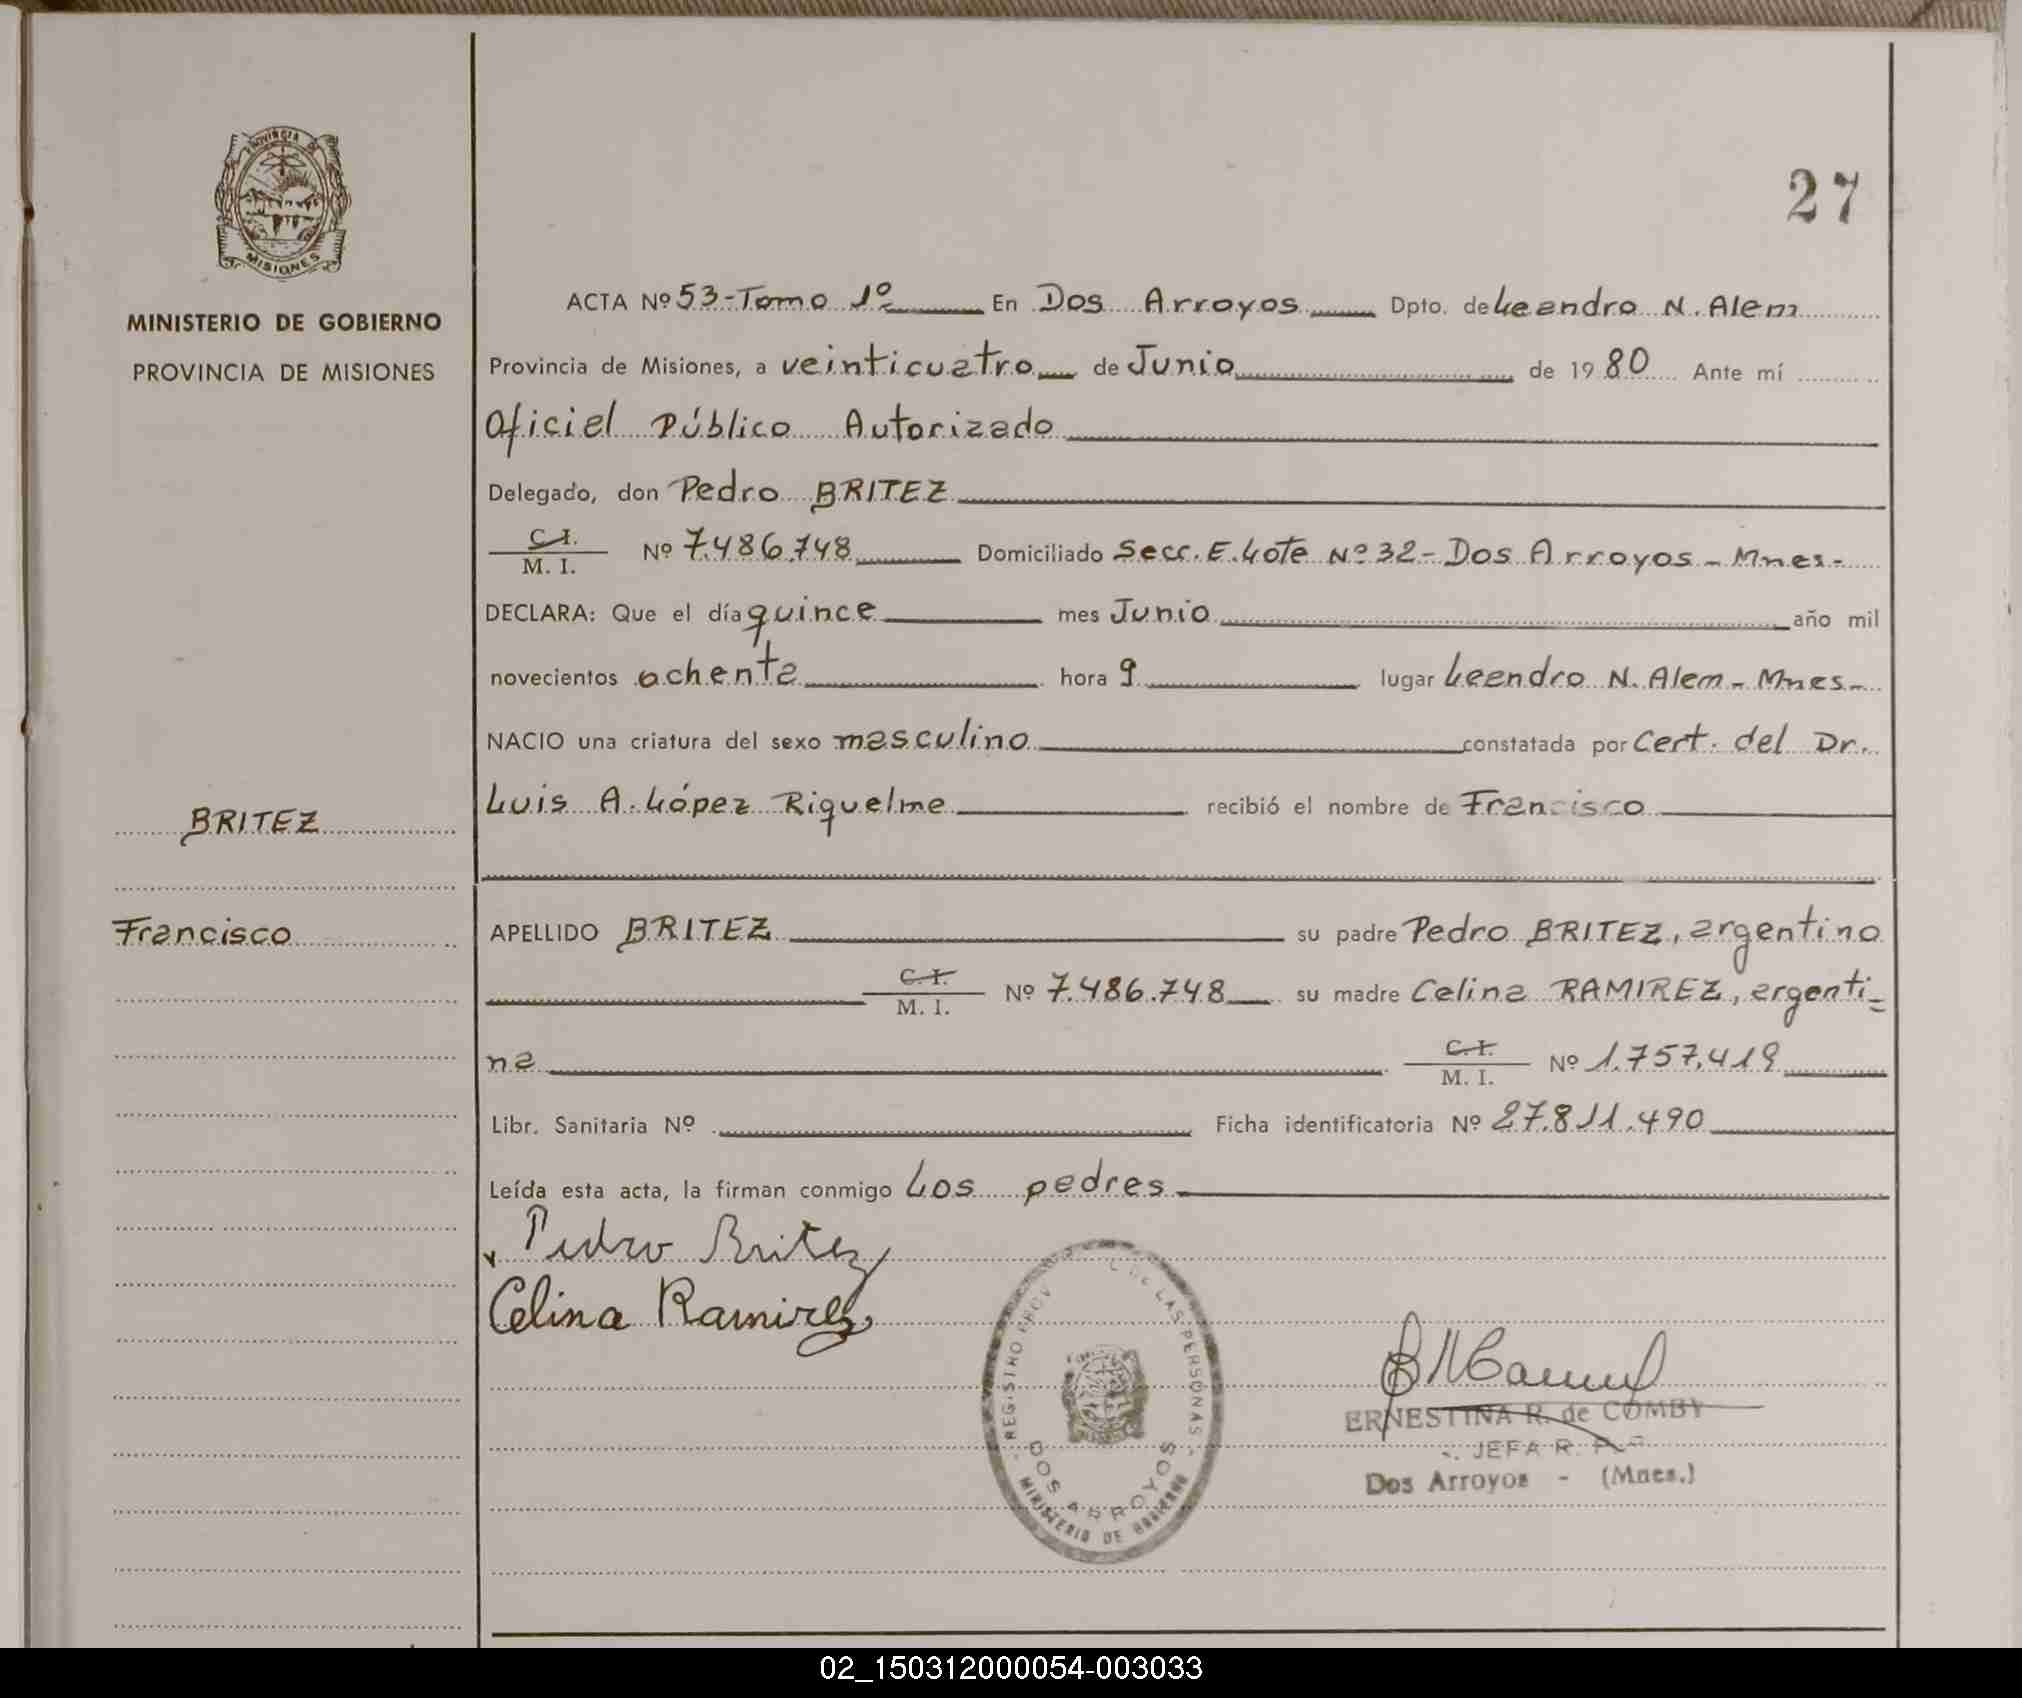 27
PROVINCIA DE
MISIONES
MINISTERIO DE GOBIERNO
PROVINCIA DE MISIONES
ACTA Nº 53-Tomo 1º En Dos Arroyos Dpto. de Leandro N. Alem
Provincia de Misiones, a veinticuatro de Junio de 1980 Ante mí
Oficial Público Autorizado
Delegado, don Pedro BRITEZ
C. I.
M. I. Nº 7.486.748 Domiciliado Secc. E. Lote Nº 32- Dos Arroyos - Mnes-
DECLARA: Que el día quince mes Junio año mil
novecientos ochenta hora 9 lugar Leandro N. Alem - Mnes-
NACIO una criatura del sexo masculino constatada por Cert. del Dr.
Luis A. López Riquelme recibió el nombre de Francisco
BRITEZ
Francisco
APELLIDO BRITEZ su padre Pedro BRITEZ, argentino
C. I.
M. I. Nº 7.486.748 su madre Celina RAMIREZ, argenti-
na C. I.
M. I. Nº 1.757.419
Libr. Sanitaria Nº Ficha identificatoria Nº 27.811.490
Leída esta acta, la firman conmigo Los padres
Pedro Britez
Celina Ramirez
REGISTRO PROV DE LAS PERSONAS
DOS ARROYOS
MINISTERIO DE GOBIERNO
ERNESTINA R. de COMBY
JEFA R. P.
Dos Arroyos - (Mnes.)
02_150312000054-003033